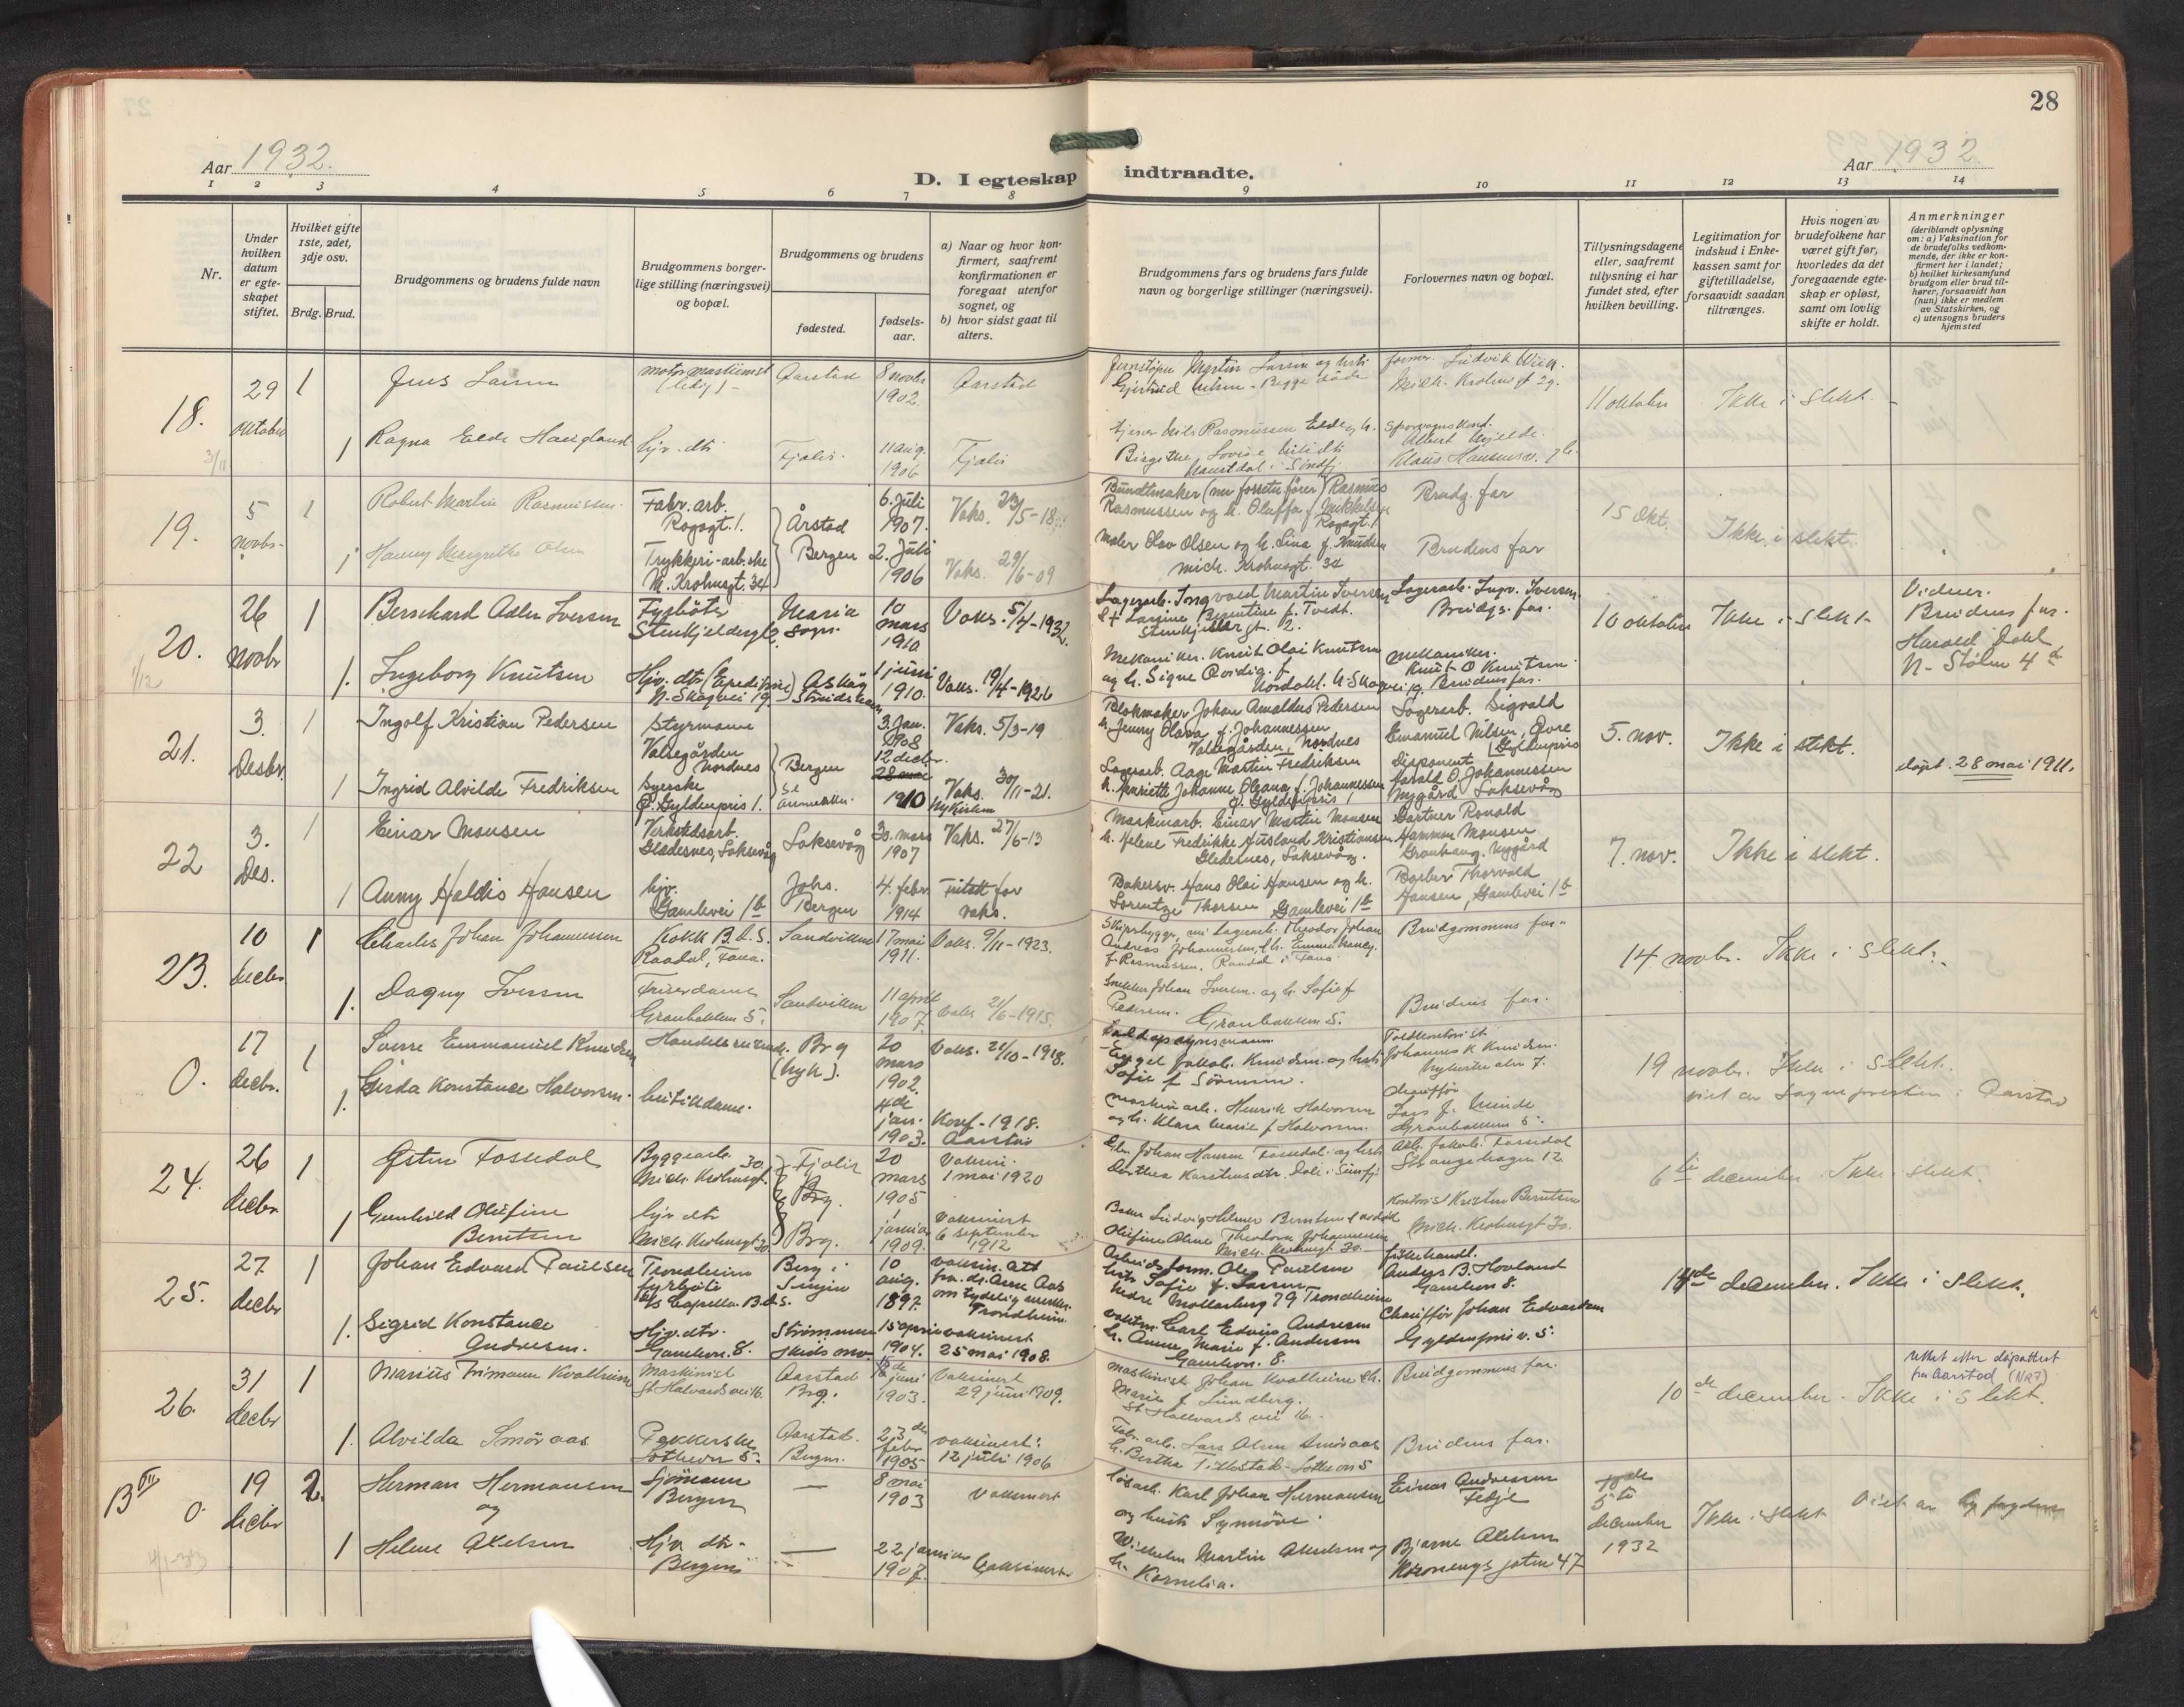 28
Aar 1932.
D. I egteskap indtraadte.
Aar 1932
1 2 3 4 5 6 7 8 9 10 11 12 13 14
Nr.
Under hvilken datum er egteskapet stiftet.
Hvilket gifte 1ste, 2det, 3dje osv.
Brdg. Brud.
Brudgommens og brudens fulde navn
Brudgommens borgerlige stilling (næringsvei) og bopæl.
Brudgommens og brudens
fødested.
fødselsaar.
a) Naar og hvor konfirmert, saafremt konfirmationen er foregaat utenfor sognet, og
b) hvor sidst gaat til alters.
Brudgommens fars og brudens fars fulde navn og borgerlige stillinger (næringsvei).
Forlovernes navn og bopæl.
Tillysningsdagene eller, saafremt tillysning ei har fundet sted, efter hvilken bevilling.
Legitimation for indskud i Enkekassen samt for giftetilladelse, forsaavidt saadan tiltrænges.
Hvis nogen av brudefolkene har været gift før, hvorledes da det foregaaende egteskap er opløst, samt om lovlig skifte er holdt.
Anmerkninger
(deriblandt oplysning om: a) Vaksination for de brudefolks vedkommende, der ikke er konfirmert her i landet; b) hvilket kirkesamfund brudgom eller brud tilhører, forsaavidt han (hun) ikke er medlem av Statskirken, og c) utensogns bruders hjemsted
18. 29 oktober 1 Jens Larsen motormaskinist (ledig) Aarstad 8 novbr 1902. Aarstad
Martin Larsen og hustr Gjertrud - Begge døde
Ludvik Wiig. Mich. Krohnsgt 29.
11 oktober Ikke i slekt.
1 Ragna Eelde Haugland hjv. dtr Fjaler. 11 aug. 1906 Fjaler
Nils Rasmussen Eelde og h. Birgithe Lovise
Sporvognskond. Albert
3/11
19. 5 novbr. 1 Robert Martin Rasmussen Fabr. arb. Rogagt. 1. Årstad 6. Juli 1907. Vaks. 23/5-18
Bundtmaker Rasmus Rasmussen og h. Oluffa f. Mikkelsen Rogagt. 1
Brudg. far 15 Okt. Ikke i slekt
1 Hanny Margrethe Olsen Trykkeri-arb.ske M. Krohnsgt. 34 Bergen 2. Juli 1906 Vaks. 29/6-09
Maler Olav Olsen og h. Lina f. Knudsen mich. Krohnsgt. 34
Brudens far
20. 26 novbr 1 Bernhard Adler Iversen Fyrbøter Stenkjeldergt 2. Maria sogn. 10 mars 1910 Vaks. 5/4-1932.
Lagerarb. Ingvald Martin Iversen Berntine f. Tvedt. Stenkjellergt. 2.
Lagerarb. Ingv. Iversen. Brudgs. far.
10 oktober Ikke i slekt
Vidner. Brudens far. Harald Dahl N. Stølen 4 d
1/12
1. Ingeborg Knutsen Hjv. dtr N. Skogvei 19 Askøy 1 juni 1910. Vaks. 19/4-1926
Mekaniker. Knut Olai Knutsen og h. Signe
mekaniker. Knut O Knutsen Brudens far.
21. 3. Desbr. 1 Ingolf Kristian Pedersen Styrmann Valsegården Nordnes Bergen 3. Jan. 1908 Vaks. 5/3-19
Blokmaker Johan Arnoldus Pedersen h. Jenny Olava f. Johannessen Valsegården, Nordnes
Lagerarb. Sigvald Emanuel Nilsen, Øvre Gyldenpris
5. nov. Ikke i slekt.
1 Ingrid Alvilde Fredriksen syerske Ø. Gyldenpris 1. 12 decbr. 28 mai 1910 Vaks. 30/11-21. Nykirken
Lagerarb. Aage Martin Fredriksen h. Henriette Johanne Oleana f. Johannessen Ø. Gyldenpris 1
Disponent Harald O. Johannessen Nygård Laksevåg
døpt. 28 mai 1911.
22 3. Des. 1 Einar Monsen Verkstedsarb. Gledesnes, Laksevåg Laksevåg 30. mars 1907 Vaks. 27/6-13
Maskinarb. Einar Martin Monsen h. Helene Fredrikke Kristiansen Gledesnes, Laksevåg.
Gartner Ronald Hammon Monsen Granhaug. Nygård
7. nov. Ikke i slekt.
1 Anny Haldis Hansen hjv. Gamlevei 1b Johs. Bergen 4. febr 1914 Fritatt for vaks.
Bakersv. Hans Olai Hansen og h. Lorentze Thorsen Gamlevei 1b
Barber Thorvald Hansen, Gamlevei 1b
23. 10 decbr 1 Charles Johan Johannessen Kokk B.d.S. Raadal, Fana. Sandviken 17 mai 1911. Vaks. 9/11-1923.
Skipsbygger, nu Lagerarb. Theodor Johan Andreas Johannessen, f. Rasmussen. Raadal i Fana
Brudgommens far.
14 novbr. Ikke i slekt.
1. Dagny Iversen Granbakken 5. Sandviken 11 april 1907. Vaks 21/6-1915.
Snekker Johan Iversen og h. Sofie f Pedersen. Granbakken 5.
Brudens far.
0. 17 decbr. 1 Sverre Emmanuel Knudsen Handelsreisende. Brg (Nyk). 20 mars 1902. Vaks. 21/10-1918.
Engel Jakob Knudsen og hustr Sofie f Sørensen.
Toldkontorist Johannes K Knudsen. Nykirkealm 7.
19 novbr. Ikke i slekt.
viet av sognepresten i Aarstad
1. Gerda Konstance Halvorsen butikkdame. 4de jan. 1903. Konf-1918. Aarstad
maskinarb. Henrik Halvorsen og h. Klara Marie f Halvorsen.
chauffør Lars J. Granbakken 5.
24. 26 decbr 1 Østen Fossedal Byggearb. Mich. Krohnsgt. 30 Fjaler 20 mars 1905 Vaksin. 1 mai 1920
Johan Hansen Fossedal og hustr Dorthea Karstensdtr.
Arb. Jakob Fossedal Strangehagen 12.
6te december Ikke i slekt.
1 Gunhild Olufine Berntsen hjv dtr Mich. Krohnsgt 30 Brg. januar 1909. Vaksinert 6 september 1912
Baker Ludvig Helmer Berntsen Mich. Krohnsgt 30.
Kontorist Kristen Berntsen Mich. Krohnsgt 30.
25. 27 decbr 1 Johan Edvard Paulsen Trondheim fyrbøter D/S Capella B.d.S. 10 aug. 1897. vaksin. att fra dr. Arne Aas om tydelig merke. Trondheim
Arbeidsform. Ole Paulsen hustr Sofie f. Larsen Nedre Møllenberg 79 Trondheim
fiskehandl. Anders B. Hovland Gamlevn 8.
14de december. Ikke i slekt.
1. Sigrid Konstance Andresen. Hjv. dtr. Gamlevn. 8. 15 april 1904. vaksinert 25 mai 1908.
Carl Edvin Andresen h. Anne Marie f. Andersen Gamlevn. 8.
Chauffør Johan Edvardsen Gyldenpris v. 5.
26. 31 decbr 1 Marius Trimann Kvalheim Maskinist St Halvardsvei 16. Aarstad Brg. juni 1903. Vaksinert 29 juni 1909.
maskinist Johan Kvalheim Marie f Lundberg. St Hallvards vei 16.
Brudgommens far.
10de december. Ikke i slekt.
rettet etter dåpattest fra Aarstad (Nr 7)
1. Alvilda Smöraas Pakkerske Aarstad Bergen. 23de febr 1905 vaksinert: 12 juli 1906
Fabr. arb. Lars Olsen Smöraas h. Bertha
Brudens far.
B VII 0. 19 decbr 2. Herman Hermansen og Sjömann Bergen — 8 mai 1903 Vaksinert
Karl Johan Hermansen og hustr Synnöve
Einar Andresen Febje
5te december 1932 Ikke i slekt Viet av
1 Helene Akelsen Hjv dtr. Bergen — 22 januar 1907. Vaksinert
Vilhelm Martin Akelsen og h. Kornelia.
Bjarne Akelsen 47
4/1-33